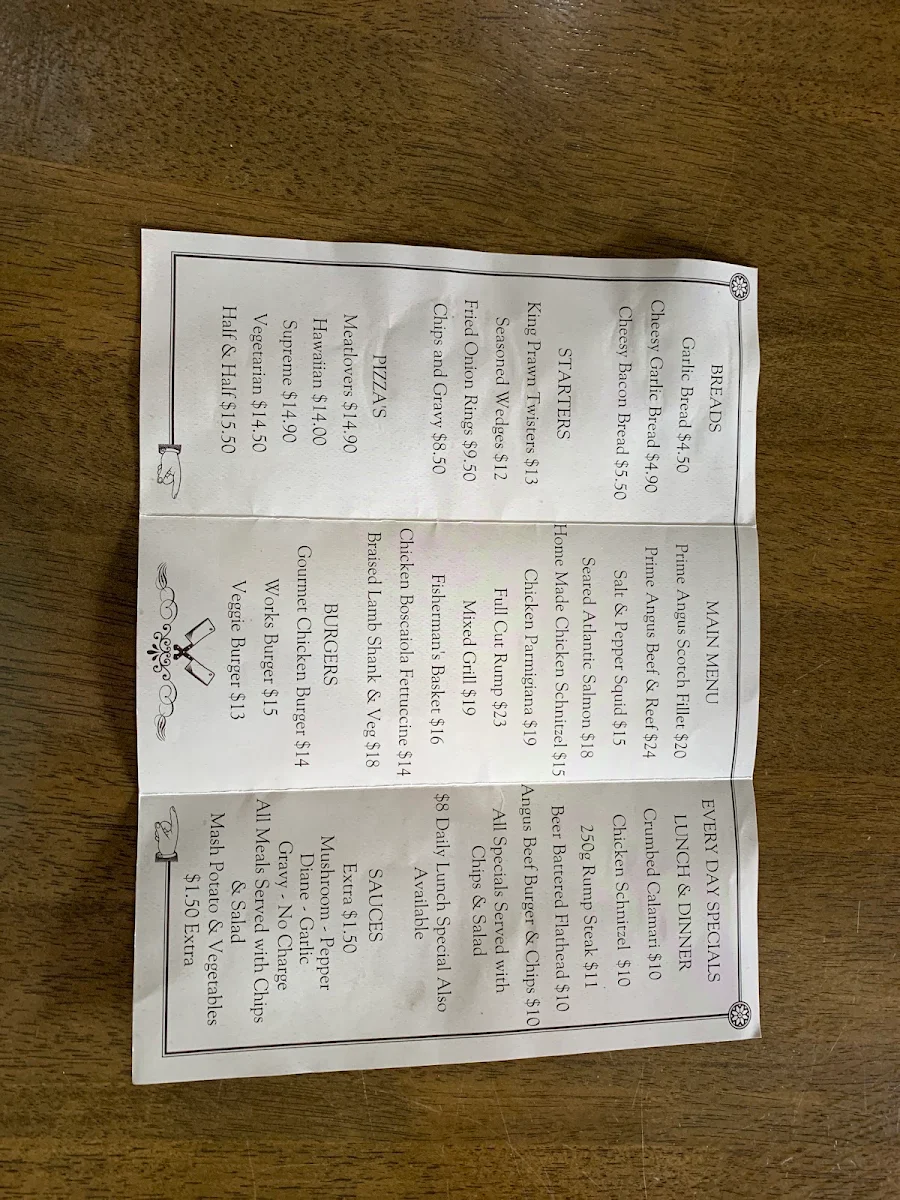 BREADS
Garlic Bread $4.50
Cheesy Garlic Bread $4.90
Cheesy Bacon Bread $5.50
STARTERS
King Prawn Twisters $13
Seasoned Wedges $12
Fried Onion Rings $9.50
Chips and Gravy $8.50
PIZZA'S
Meatlovers $14.90
Hawaiian $14.00
Supreme $14.90
Vegetarian $14.50
Half & Half $15.50
MAIN MENU
Prime Angus Scotch Fillet $20
Prime Angus Beef & Reef $24
Salt & Pepper Squid $15
Seared Atlantic Salmon $18
Home Made Chicken Schnitzel $15
Chicken Parmigiana $19
Full Cut Rump $23
Mixed Grill $19
Fisherman's Basket $16
Chicken Boscaiola Fettuccine $14
Braised Lamb Shank & Veg $18
BURGERS
Gourmet Chicken Burger $14
Works Burger $15
Veggie Burger $13
EVERY DAY SPECIALS
LUNCH & DINNER
Crumbed Calamari $10
Chicken Schnitzel $10
250g Rump Steak $11
Beer Battered Flathead $10
Angus Beef Burger & Chips $10
All Specials Served with
Chips & Salad
$8 Daily Lunch Special Also
Available
SAUCES
Extra $1.50
Mushroom - Pepper
Diane - Garlic
Gravy - No Charge
All Meals Served with Chips
& Salad
Mash Potato & Vegetables
$1.50 Extra